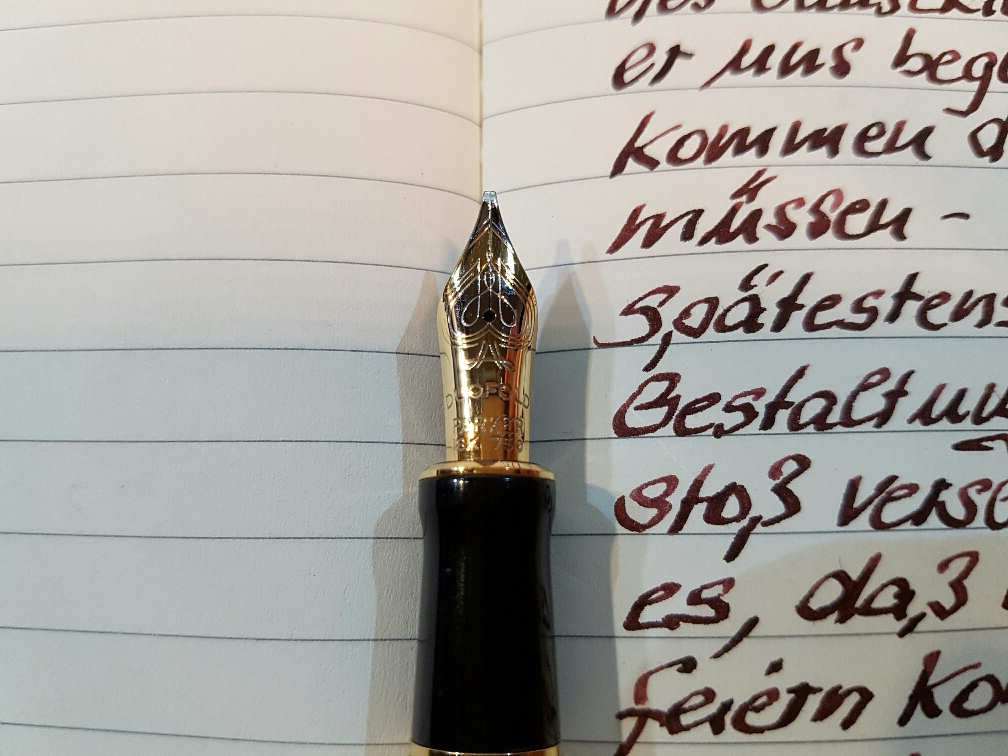 er uns
kommen
müssen -
Spätestens
Gestaltun
stoß verse
es, daß
feiern Ko
DUOFOLD
PARKER
18K 750